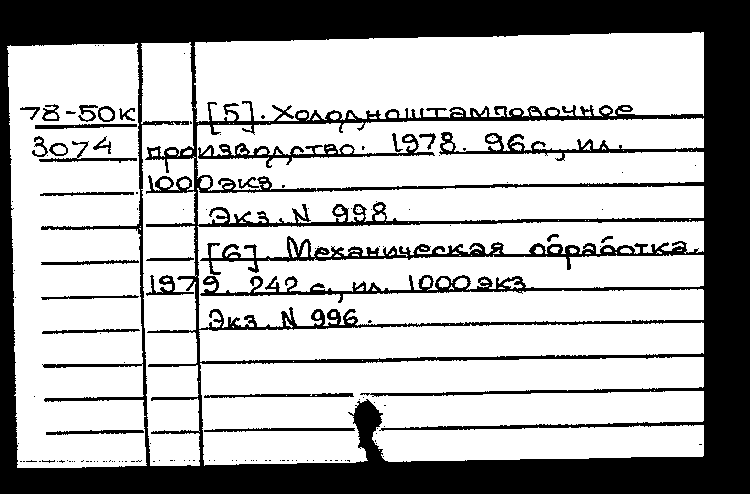 78-50к [5]. Холодноштамповочное
3074 производство. 1978. 96 с., ил.
1000 экз.
Экз. N 998.
[6]. Механическая обработка.
1979. 242 с., ил. 1000 экз.
Экз. N 996.